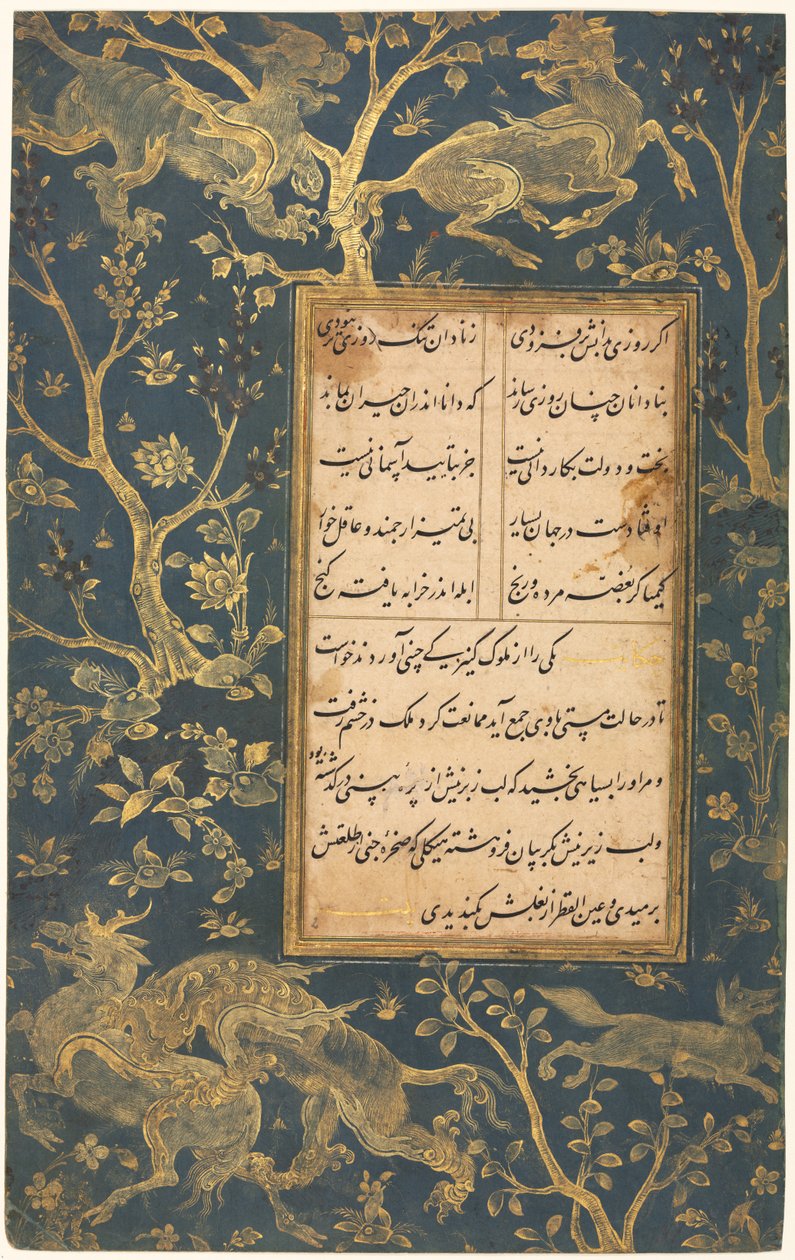 اگر روزی بدانش بر فزودی ز نادان تنگ روزی تر نبودی
بنادانان چنان روزی رساند که دانا اندران حیران بماند
بخت و دولت بکاردانی نیست جز بتأیید آسمانی نیست
اوفتادست در جهان بسیار بی تمیز ارجمند و عاقل خوار
کیمیاگر بغصه مرده و رنج ابله اندر خرابه یافته گنج
حکایت یکی را از ملوک کنیزکی چینی آوردند خواست
تا در حالت مستی با وی جمع آید ممانعت کرد ملک در خشم رفت
و مر او را بسیاهی بخشید که لب زبرینش از پرهٔ بینی در گذشته بود
ولب زیرینش بگریبان فروهشته هیکلی که صخرهٔ جنی از طلعتش
برمیدی و عین القطر از بغلش بگندیدی بیت